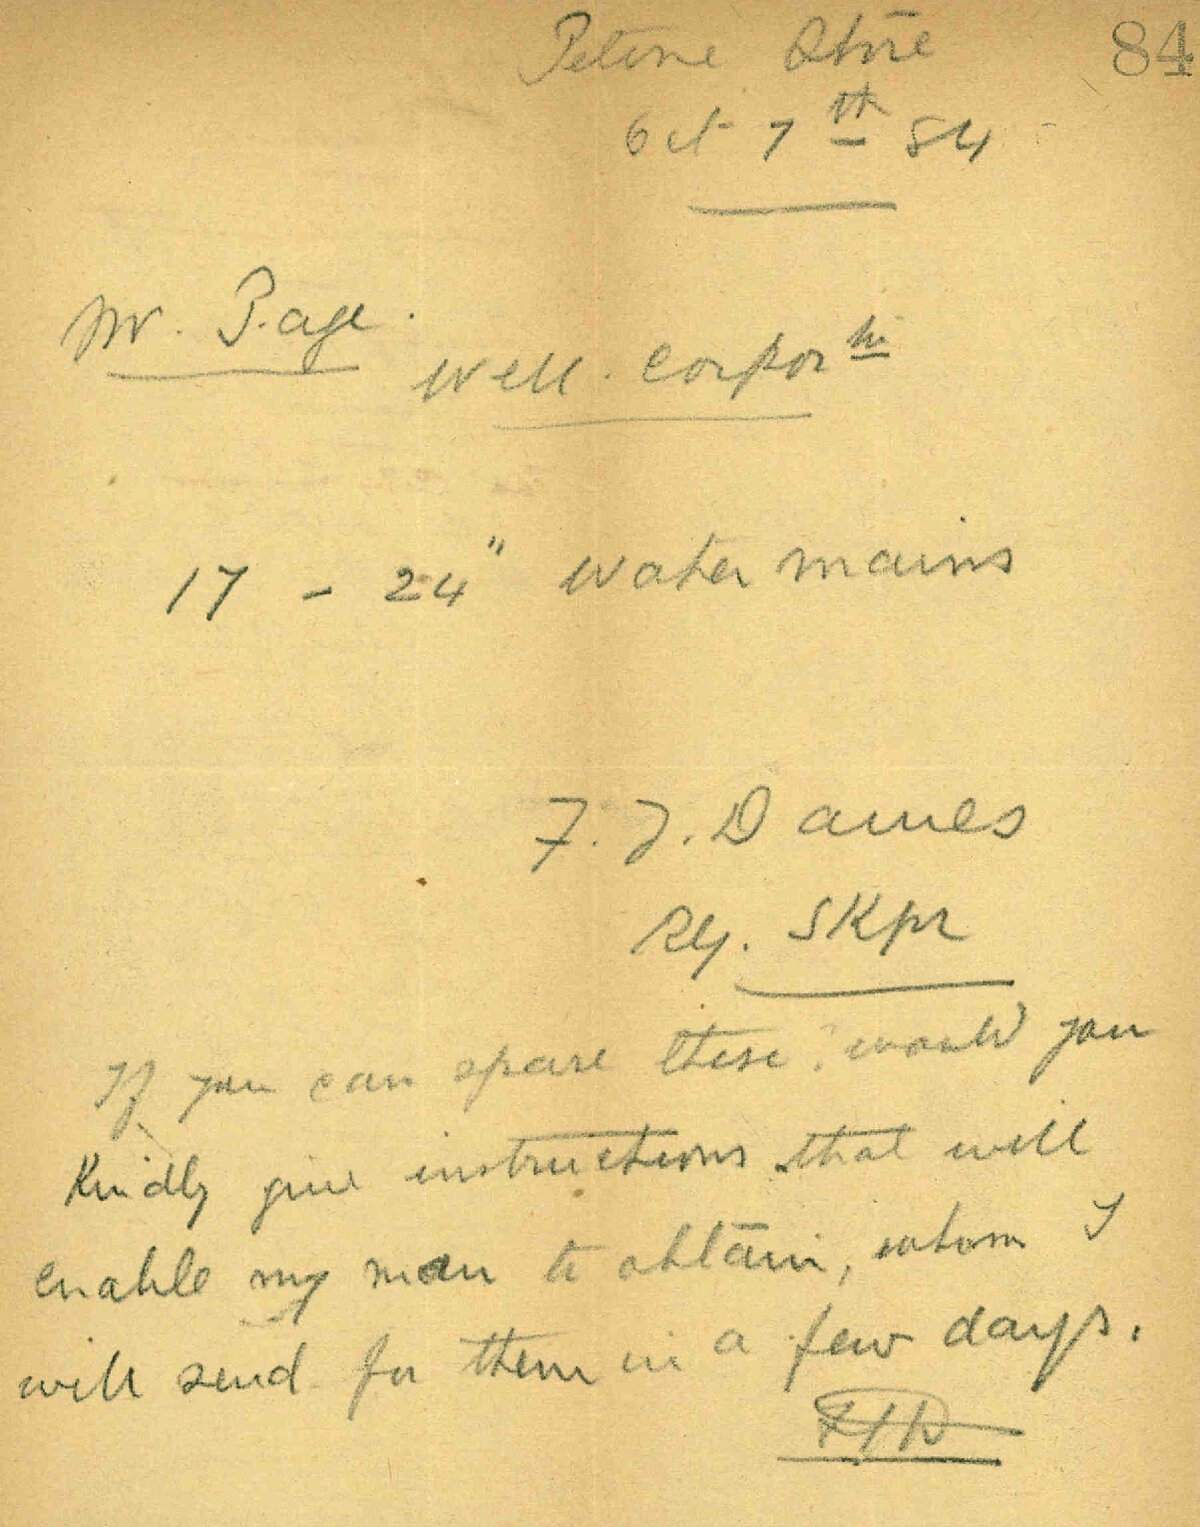 Petone Store
84
Oct 7th 84
Mr. Page.
Well. Corporn
17 - 24" Water mains
F. J. Dawes
Ry. SKpr
If you can spare these, would you
Kindly give instructions that will
enable my man to obtain, whom I
will send for them in a few days.
FJD